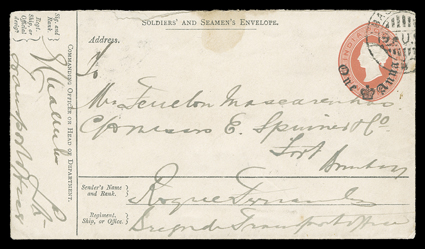 SOLDIERS' AND SEAMEN'S ENVELOPE.
Address.
To
Mr
Mascarenhas
C/o Messrs E. Spinner & Co
Fort
Bombay
Sender's Name and Rank.
Roque Fernandes
Regiment, Ship, or Office.
Brigade Transport office
INDIA
One Anna
Sig. and Rank.
Regt. Ship, or Official desigt.
COMMANDG. OFFICER OR HEAD OF DEPARTMENT.
Transport officer